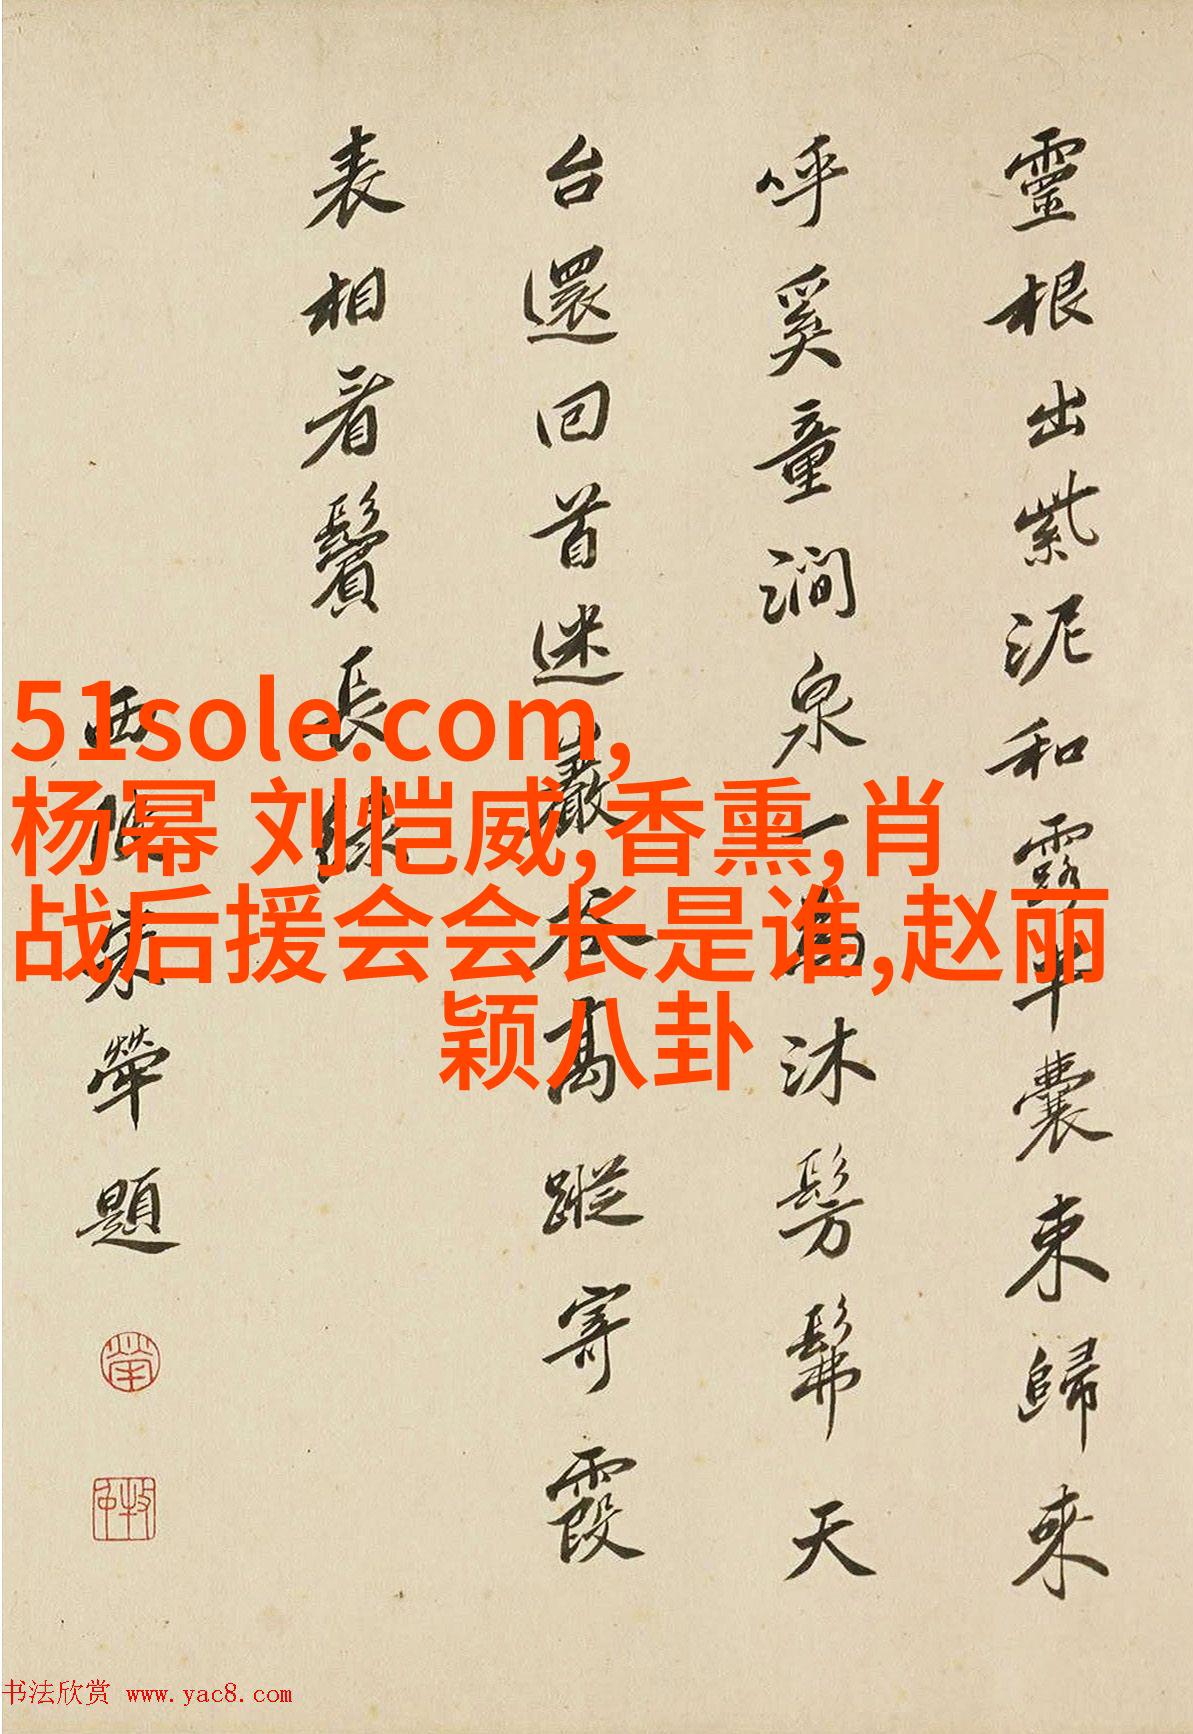 靈根出紫泥和露半囊束歸来
呼奚童澗泉一為沐髣髴天
台還回首迷巖谷髙蹤寄霞
表相看鬢長緑
西陂宋犖題
51sole.com,
杨幂 刘恺威,香熏,肖
战后援会会长是谁,赵丽
颖八卦
书法欣赏 www.yac8.com